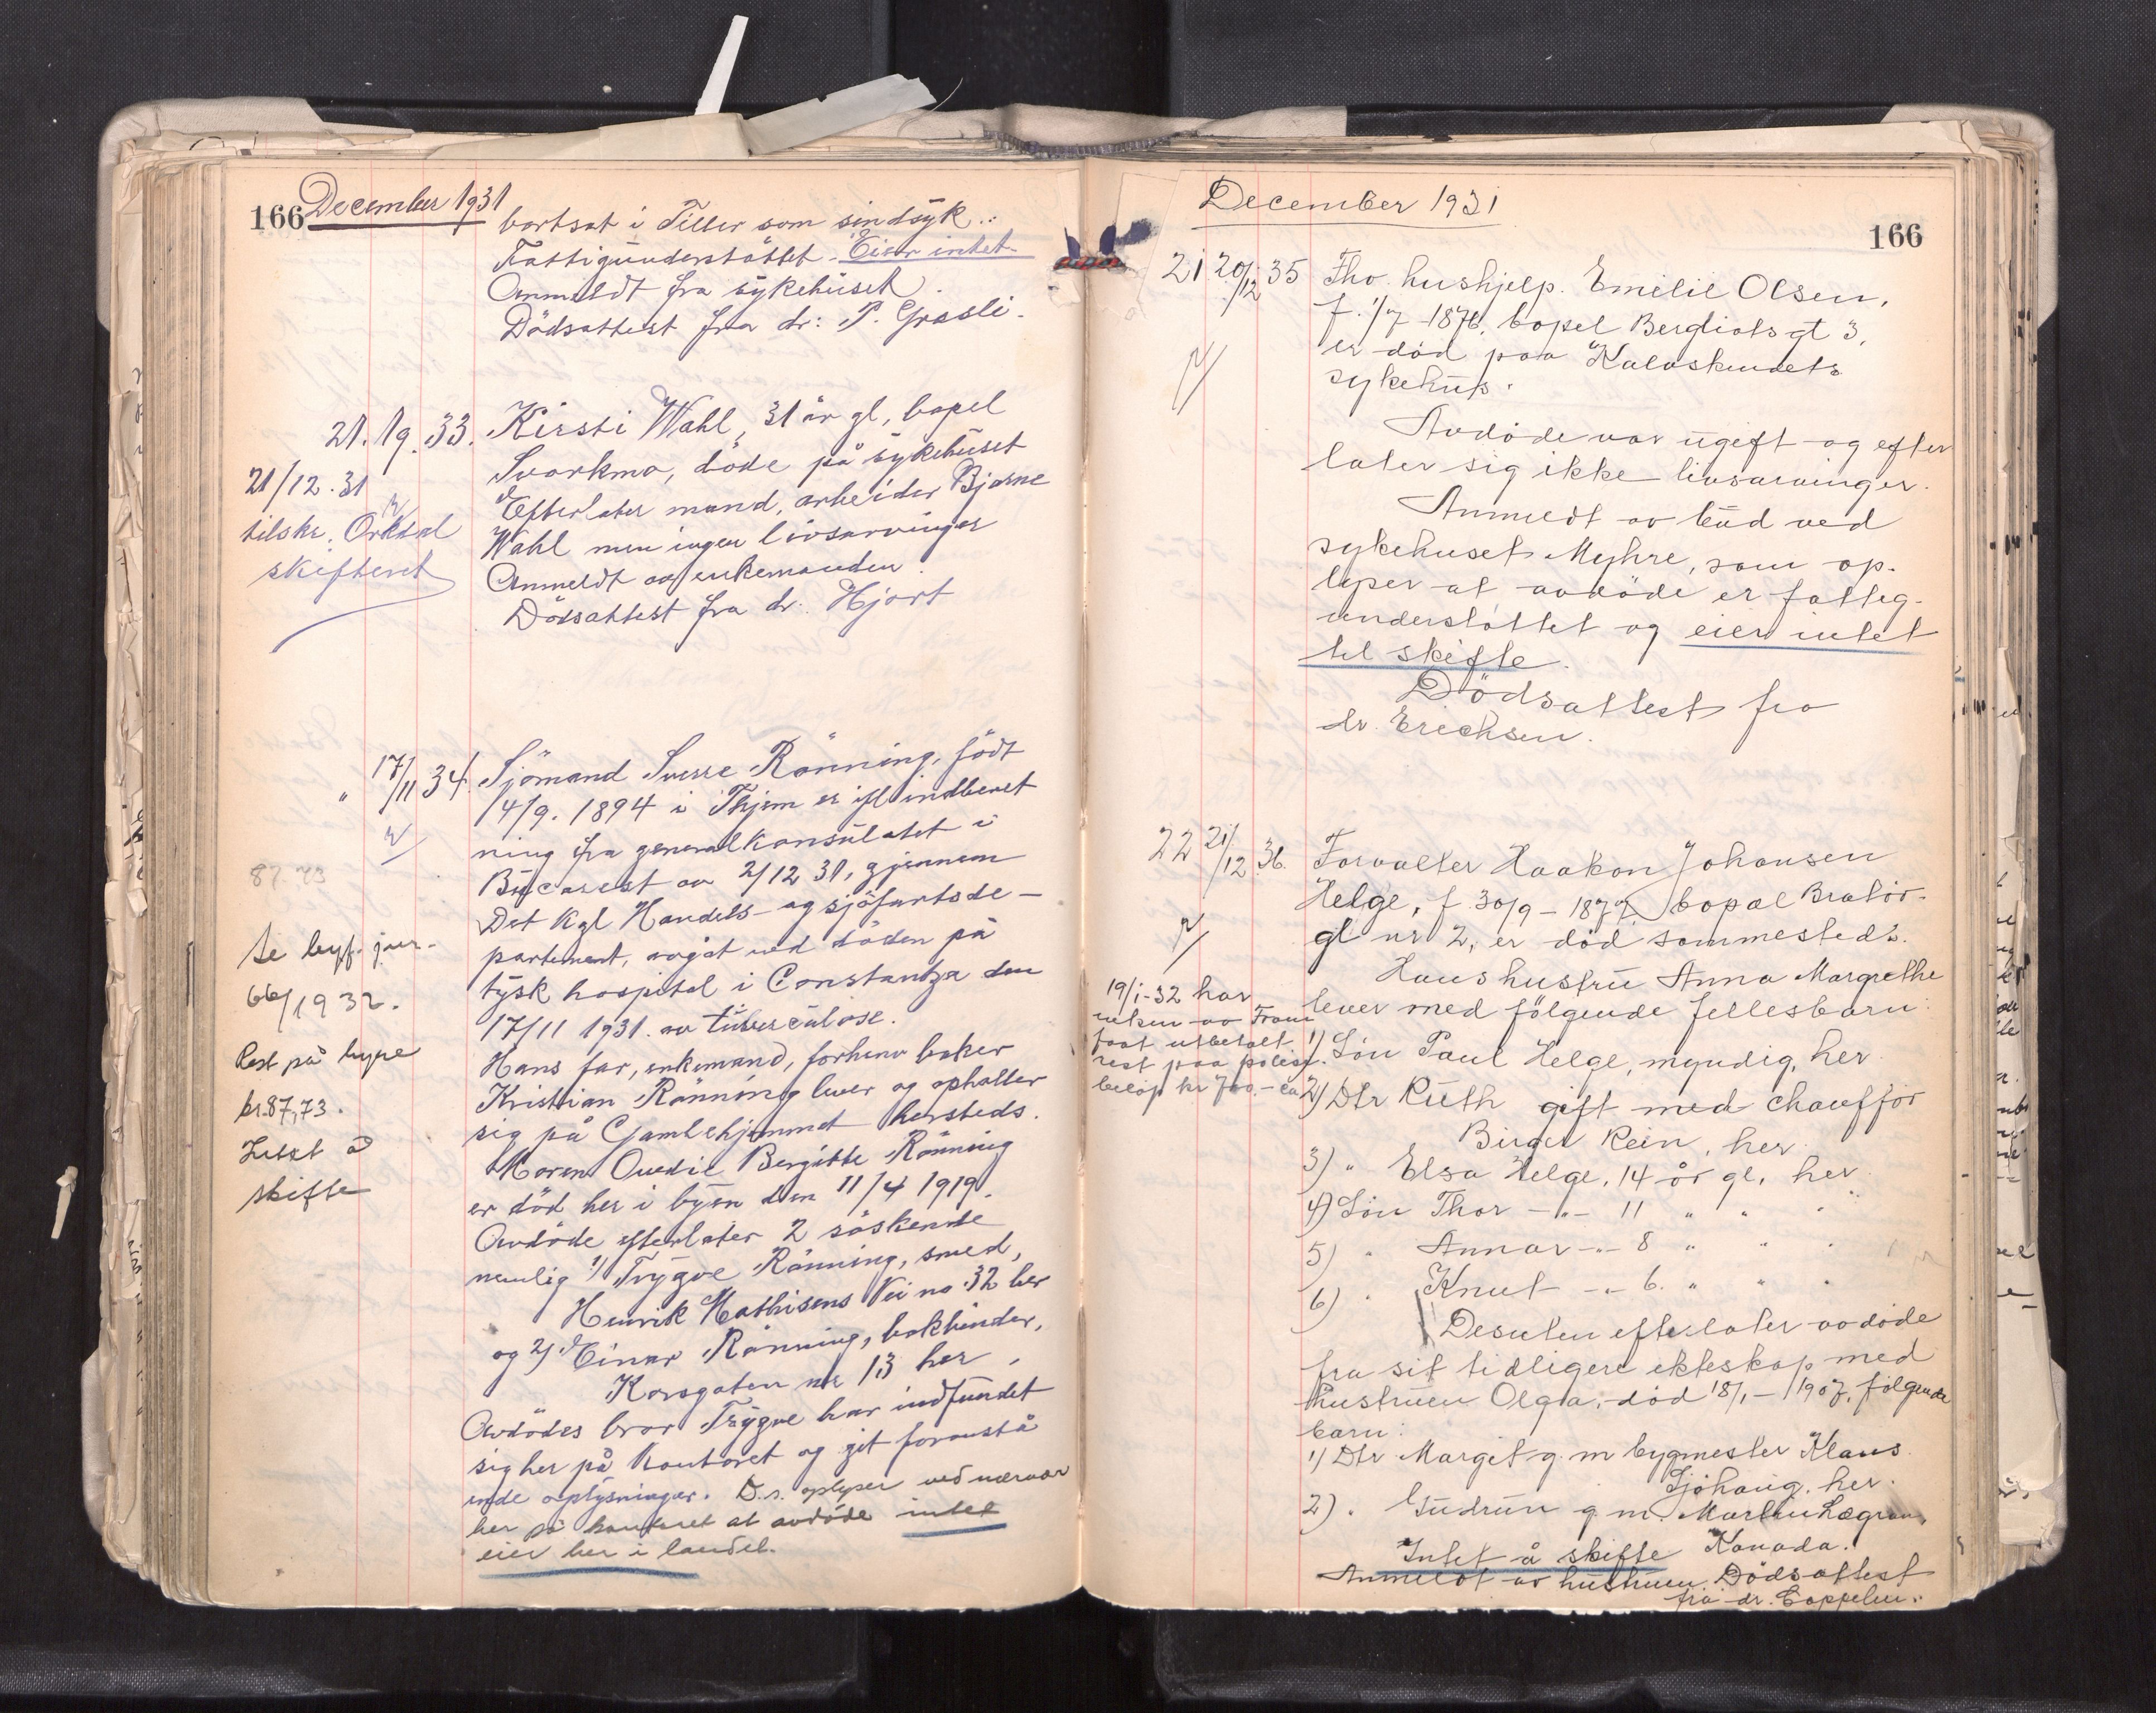 166 December 1931
bortsat i Tiller som sindsyk.
Fattigunderstöttet. Eier intet
Anmeldt fra sykehuset.
Dödsattest fra dr: P. Grasli.
21. 19. 33. Kirsti Wahl, 31 år gl, bopel
Svorkmo, döde på sykehuset
21/12.31
Efterlater mand, arbeider Bjarne
tilskr. Orkdal
Wahl men ingen livsarvinger
skifteret
Anmeldt av enkemanden.
Dödsattest fra dr: Hjort
" 17/11 34. Sjömand Sverre Rönning, född
14/9. 1894 i Thjem er ifl indberet
ning fra generalkonsulatet i
87.73
Bucarest av 2/12 31, gjennem
Det Kgl Handels- og sjöfartsde-
se byf. jur-
partement, avgåt ved döden på
66/1932.
tysk hospital i Constantza den
17/11 1931. av tuberculose.
Rest på hyre
Hans far, enkemand, forhenv baker
kr. 87,73.
Kristian Rönning lever og opholder
Intet å
sig på Gamlehjemmet hersteds.
skifte
Moren Ovedie Bergitte Rönning
er död her i byen den 11/4 1919.
Avdöde efterlater 2 söskende
nemlig 1) Trygve Rönning, smed,
Henrik Mathisens Vei no 32 her
og 2) Einar Rönning, bokbinder,
Korsgaten nr 13 her.
Avdödes bror Trygve har indfundet
sig her på kontoret og git foranstå
ende oplysninger. D.s. oplyser ved nærvær
her på kontoret at avdöde intet
eier her i landet.
December 1931
166
21 20/12 35 Fhv. hushjelp. Emilie Olsen,
f. 1/7-1876, bopel Bergliotsgt 3,
er död paa Kalvskindets
sykehus.
Avdöde var ugift og efter
later sig ikke livsarvinger.
Anmeldt av bud ved
sykehuset Myhre, som op-
lyser at avdöde er fattig-
understöttet og eier intet
til skifte.
Dödsattest fra
dr. Erichsen.
22 21/12 36. Forvalter Haakon Johansen
Helge, f. 30/9-1877, bopel Bratör-
gt nr 2, er död sammesteds.
Hans hustru Anna Margrethe
lever med fölgende fellesbarn:
19/1-32 har
enken av Fram
faat utbetalt
rest paa polise.
belöp kr 700.- ca
1) Sön Paul Helge, myndig, her.
2) Dtr Ruth gift med chaufför
Birger Rein, her.
3) " Elsa Helge, 14 år gl, her
4) Sön Thor -"- 11 " " "
5) " Annar -"- 8 " " "
6) " Knut -"- 6. " " "
Desuten efterlater avdöde
fra sit tidligere ekteskap med
hustruen Olga, död 18/1-1907, fölgende
barn:
1) Dtr Margit g. m bygmester Klaus
Sjöhaug, her.
2) " Gudrun g. m. Martin Lægran,
Kanada.
Intet å skifte
Anmeldt av hustruen. Dödsattest
fra dr. Coppelen.